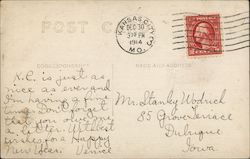 POST CARD
KANSAS CITY, 3
DEC 30
3 30 PM
1914
MO.
CORRESPONDENCE
NAME AND ADDRESS
K.C. is just as
nice as ever and
I'm having a fine
time. Don't forget
that you owe me
a letter. With best
wishes for a Happy
New Year.
Mr. Stanley Wodrich
85 Grove Terrace
Dubuque
Iowa.